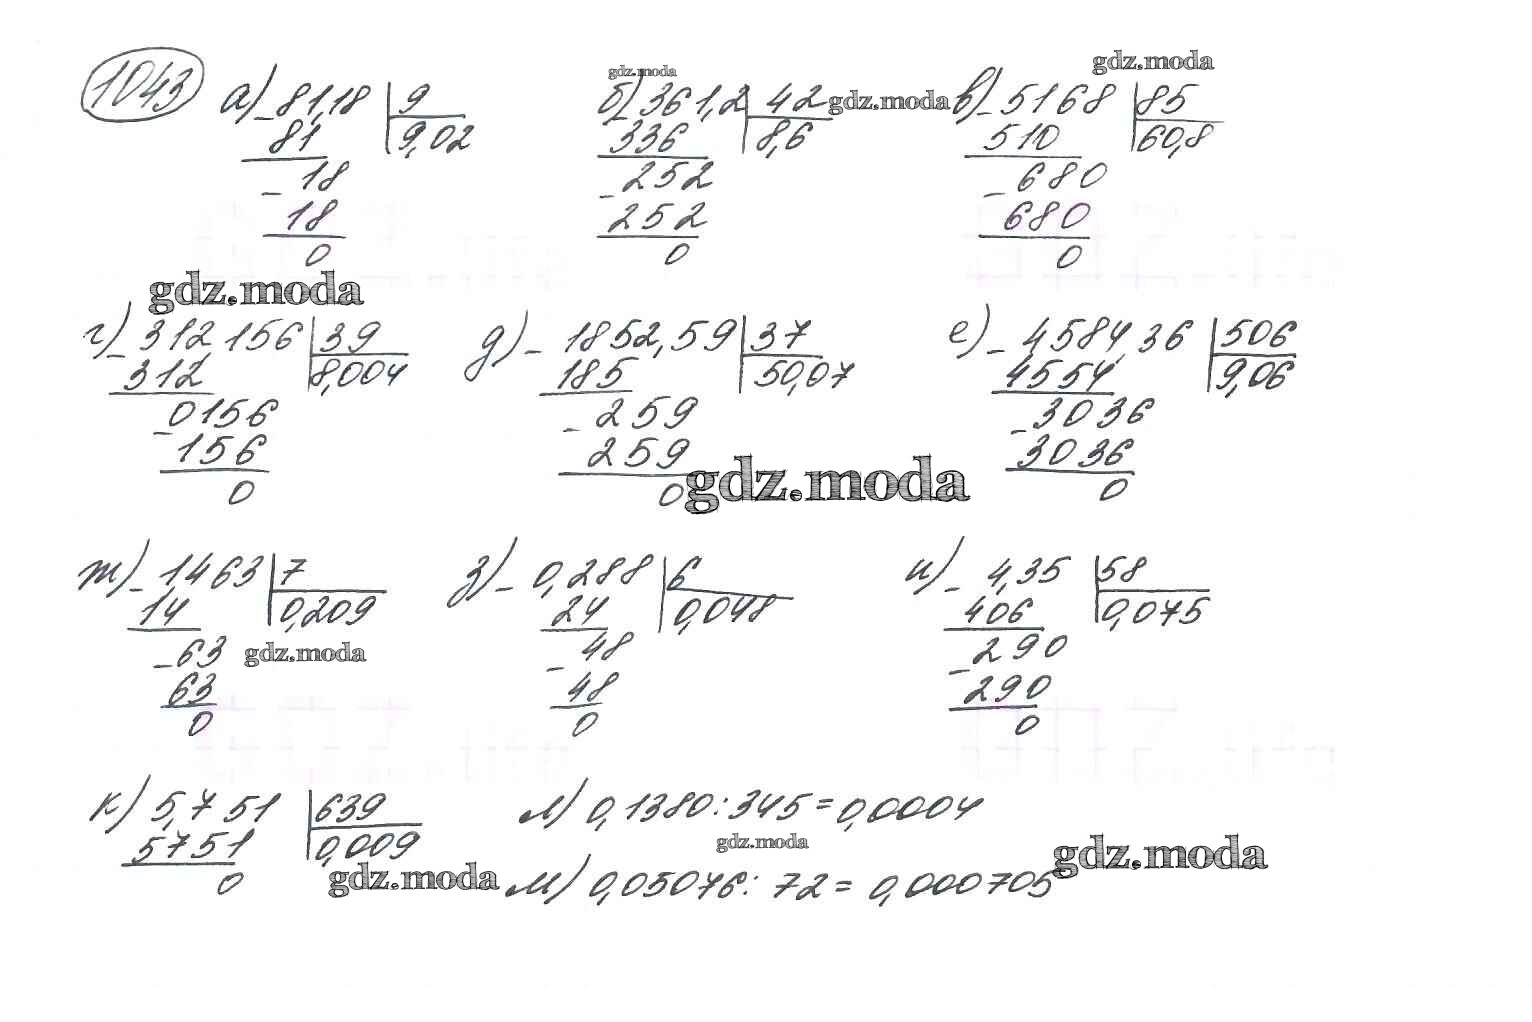 1043 а) -81,18 | 9 б) -361,2 | 42 в) -5168 | 85
81 9,02 336 8,6 510 60,8
-18 -252 -680
18 252 680
0 0 0
gdz.moda gdz.moda gdz.moda
gdz.moda
г) -312 156 | 39 д) -1852,59 | 37 е) -4584,36 | 506
312 8,004 185 50,07 4554 9,06
0156 -259 -3036
-156 259 3036
0 0 0
gdz.moda
ж) -1463 | 7 з) -0,288 | 6 и) -4,35 | 58
14 0,209 24 0,048 406 0,075
-63 -48 -290
63 48 290
0 0 0
gdz.moda
к) 5,751 | 639 л) 0,1380:345=0,0004
5751 0,009
0
gdz.moda gdz.moda gdz.moda
м) 0,05076: 72= 0,000705